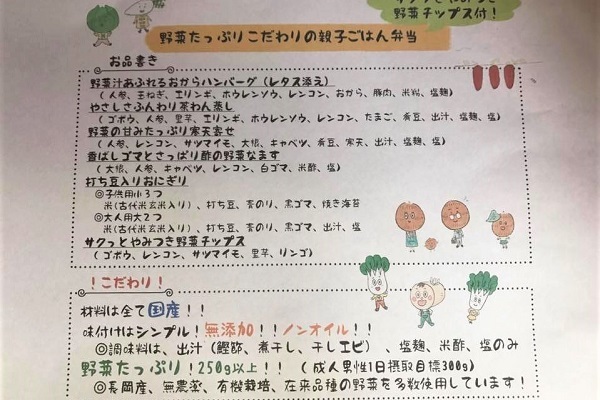 野菜チップス付！
野菜たっぷりこだわりの親子ごはん弁当
お品書き
野菜汁あふれるおからハンバーグ（レタス添え）
（人参、玉ねぎ、エリンギ、ホウレンソウ、レンコン、おから、豚肉、米粉、塩麹）
やさしさふんわり茶わん蒸し
（ゴボウ、人参、里芋、エリンギ、ホウレンソウ、レンコン、たまご、肴豆、出汁、塩麹、塩）
野菜の甘みたっぷり寒天寄せ
（人参、レンコン、サツマイモ、大根、キャベツ、肴豆、寒天、出汁、塩麹、塩）
香ばしゴマとさっぱり酢の野菜なます
（大根、人参、キャベツ、レンコン、白ゴマ、米酢、塩）
打ち豆入りおにぎり
◎子供用小３つ
米（古代米玄米入り）、打ち豆、青のり、黒ゴマ、焼き海苔
◎大人用大２つ
米（古代米玄米入り）、打ち豆、青のり、黒ゴマ、出汁、塩
サクっとやみつき野菜チップス
（ゴボウ、レンコン、サツマイモ、里芋、リンゴ）
！こだわり！
材料は全て国産！！
味付けはシンプル！無添加！！ノンオイル！！
◎調味料は、出汁（鰹節、煮干し、干しエビ）、塩麹、米酢、塩のみ
野菜たっぷり！250g以上！！（成人男性1日摂取目標300g）
◎長岡産、無農薬、有機栽培、在来品種の野菜を多数使用しています！